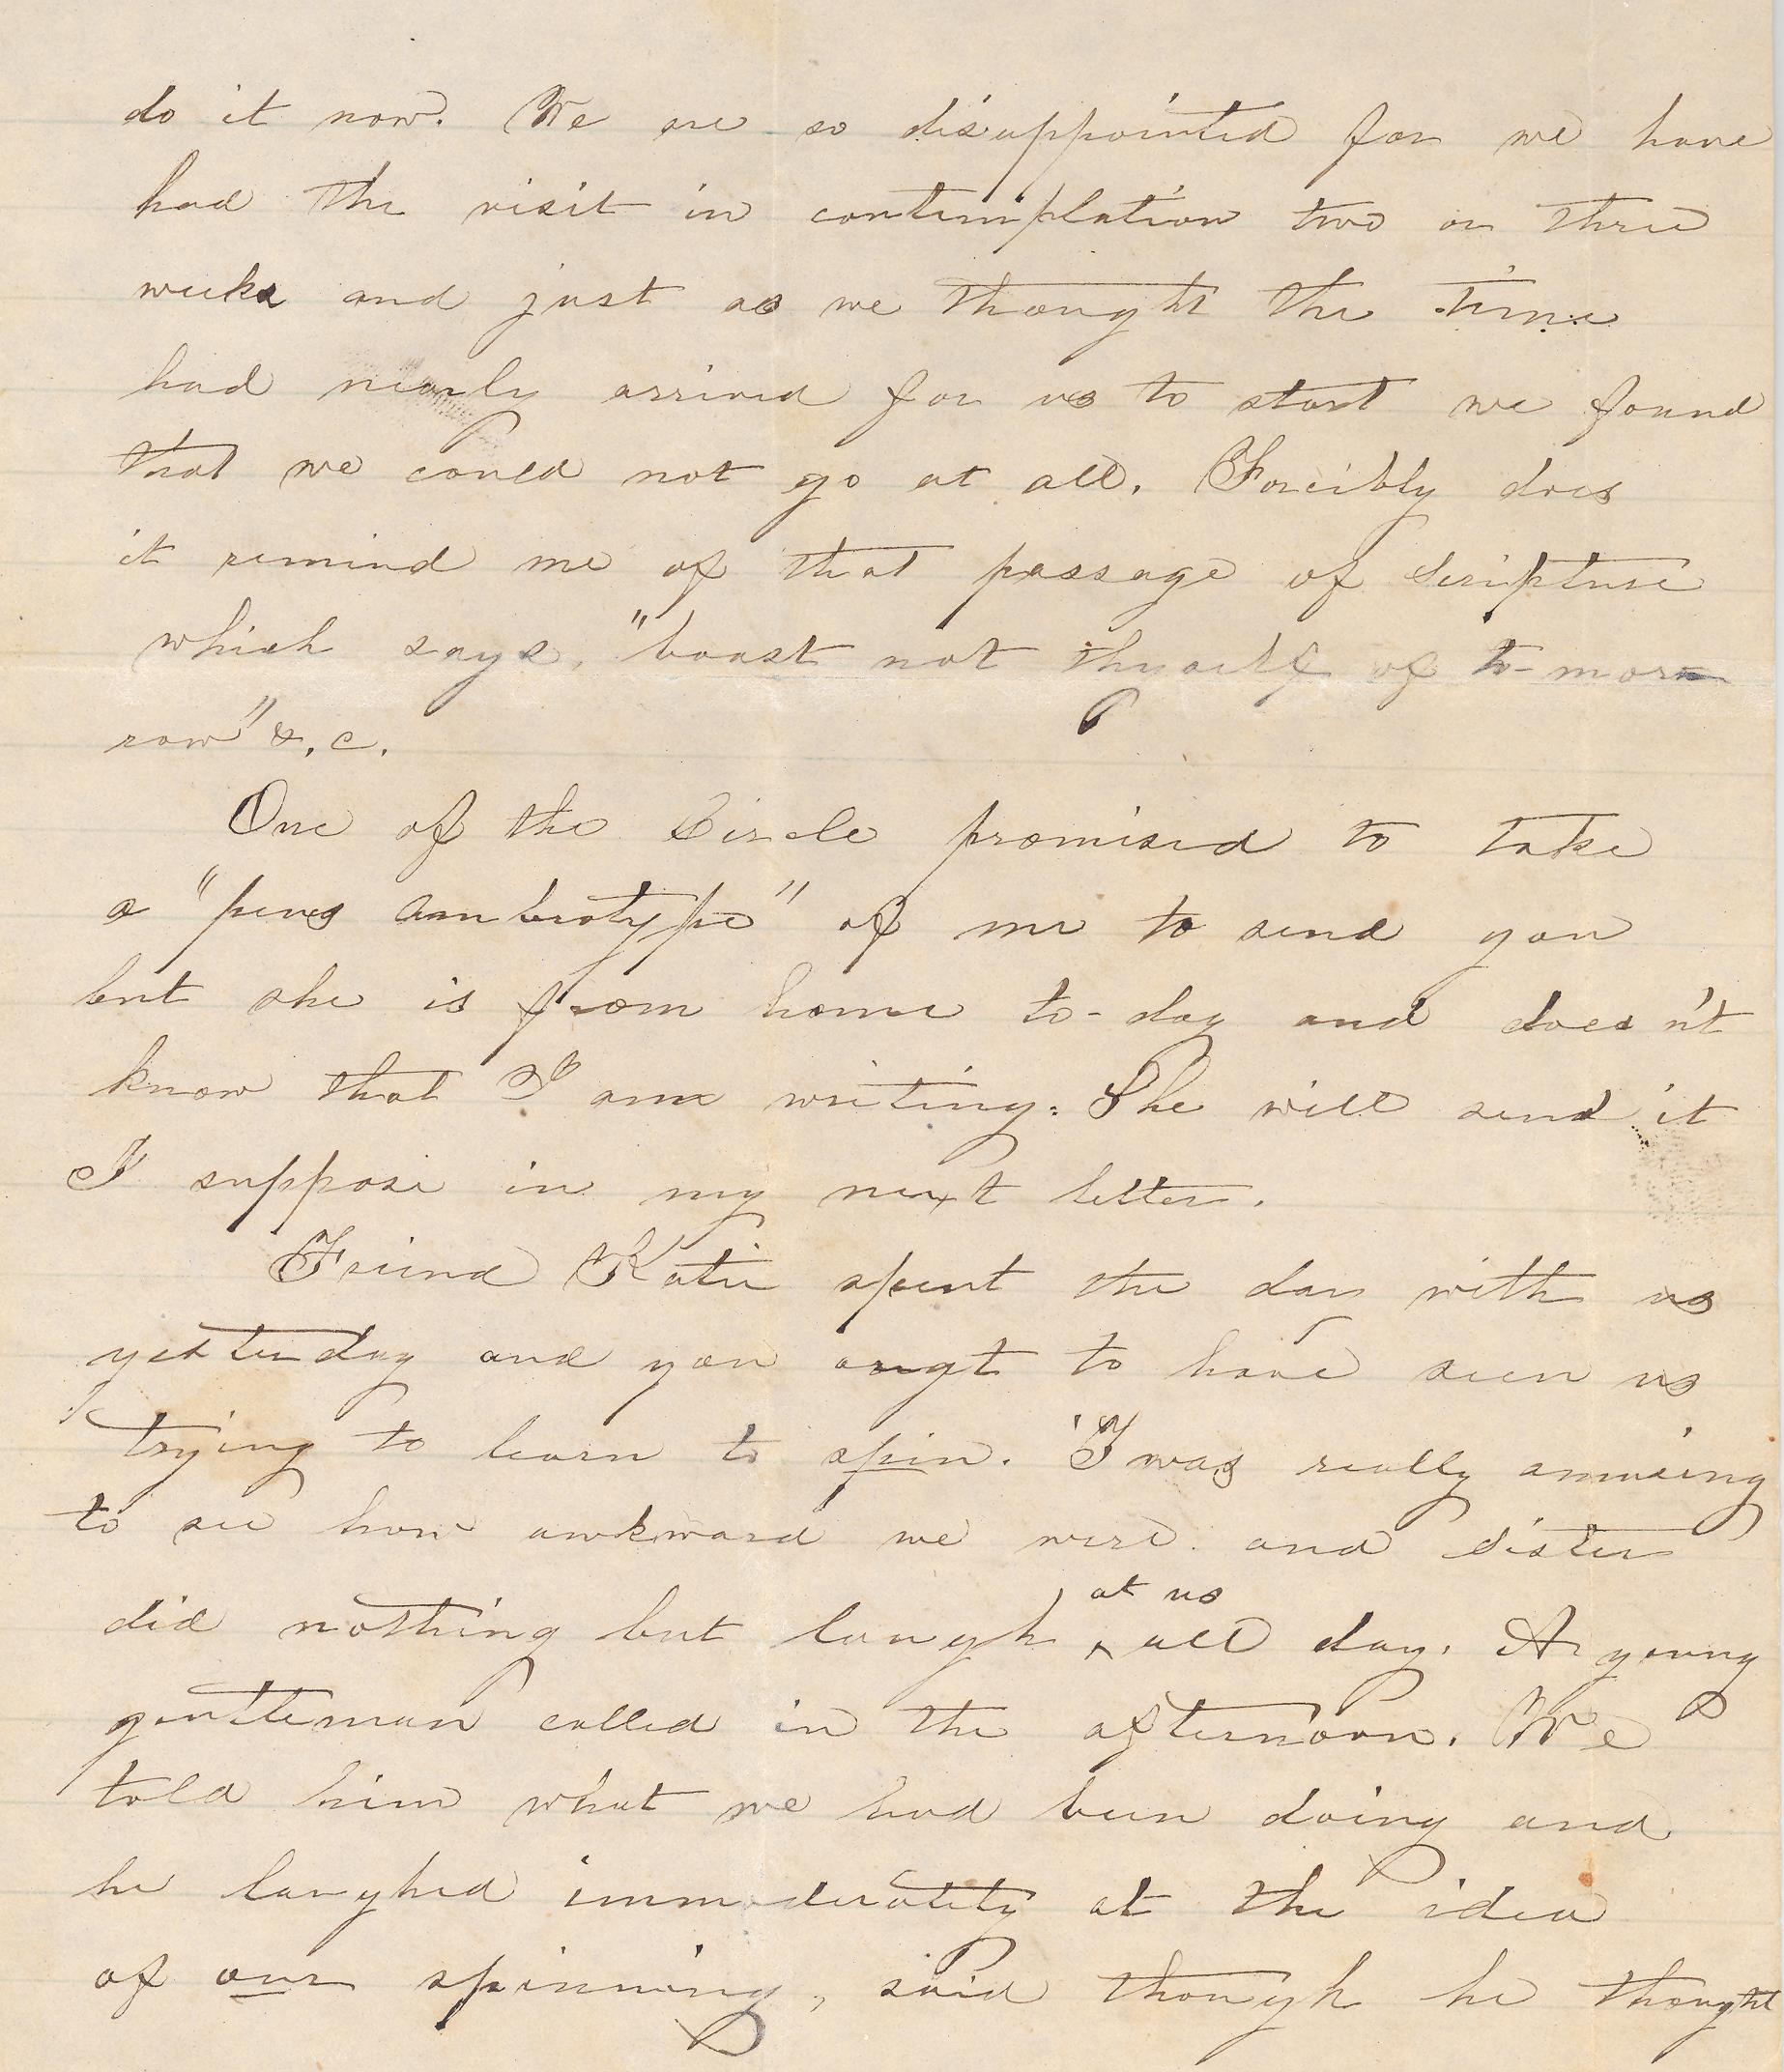 do it now. We are so disappointed for we have
had the visit in contemplation two or three
weeks and just as we thought the time
had nearly arrived for us to start we found
that we could not go at all. Forcibly does
it remind me of that passage of Scripture
which says, "boast not thyself of to-mor-
row" &.c.
One of the Circle promised to take
a "pens ambrotype" of me to send you
but she is from home to-day and does n't
know that I am writing. She will send it
I suppose in my next letter.
Friend Katie spent the day with us
yesterday and you ougt to have seen us
trying to learn to spin. 'Twas really amusing
to see how awkward we were and Sister
did nothing but laugh at us all day. A young
gentleman called in the afternoon. We
told him what we had been doing and
he laughed immoderately at the idea
of our spinning, said though he thought